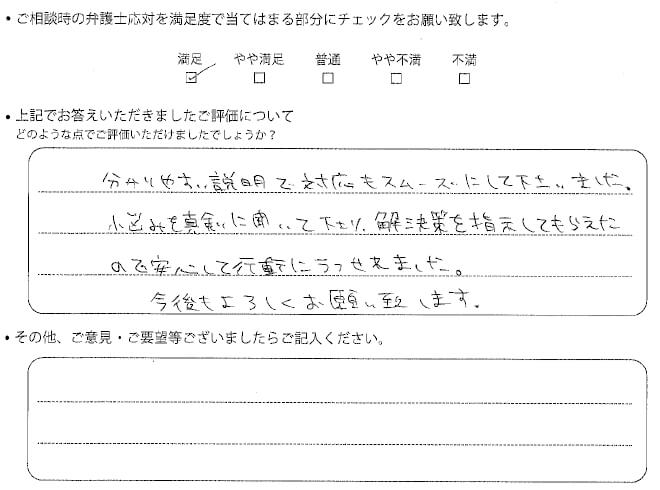 • ご相談時の弁護士応対を満足度で当てはまる部分にチェックをお願い致します。
満足 やや満足 普通 やや不満 不満
• 上記でお答えいただきましたご評価について
どのような点でご評価いただけましたでしょうか？
分かりやすい説明で対応もスムーズにして下さいました。
悩みを真剣に聞いて下さり、解決策を指示してもらえた
ので安心して行動にうつせれました。
今後もよろしくお願い致します。
• その他、ご意見・ご要望等ございましたらご記入ください。